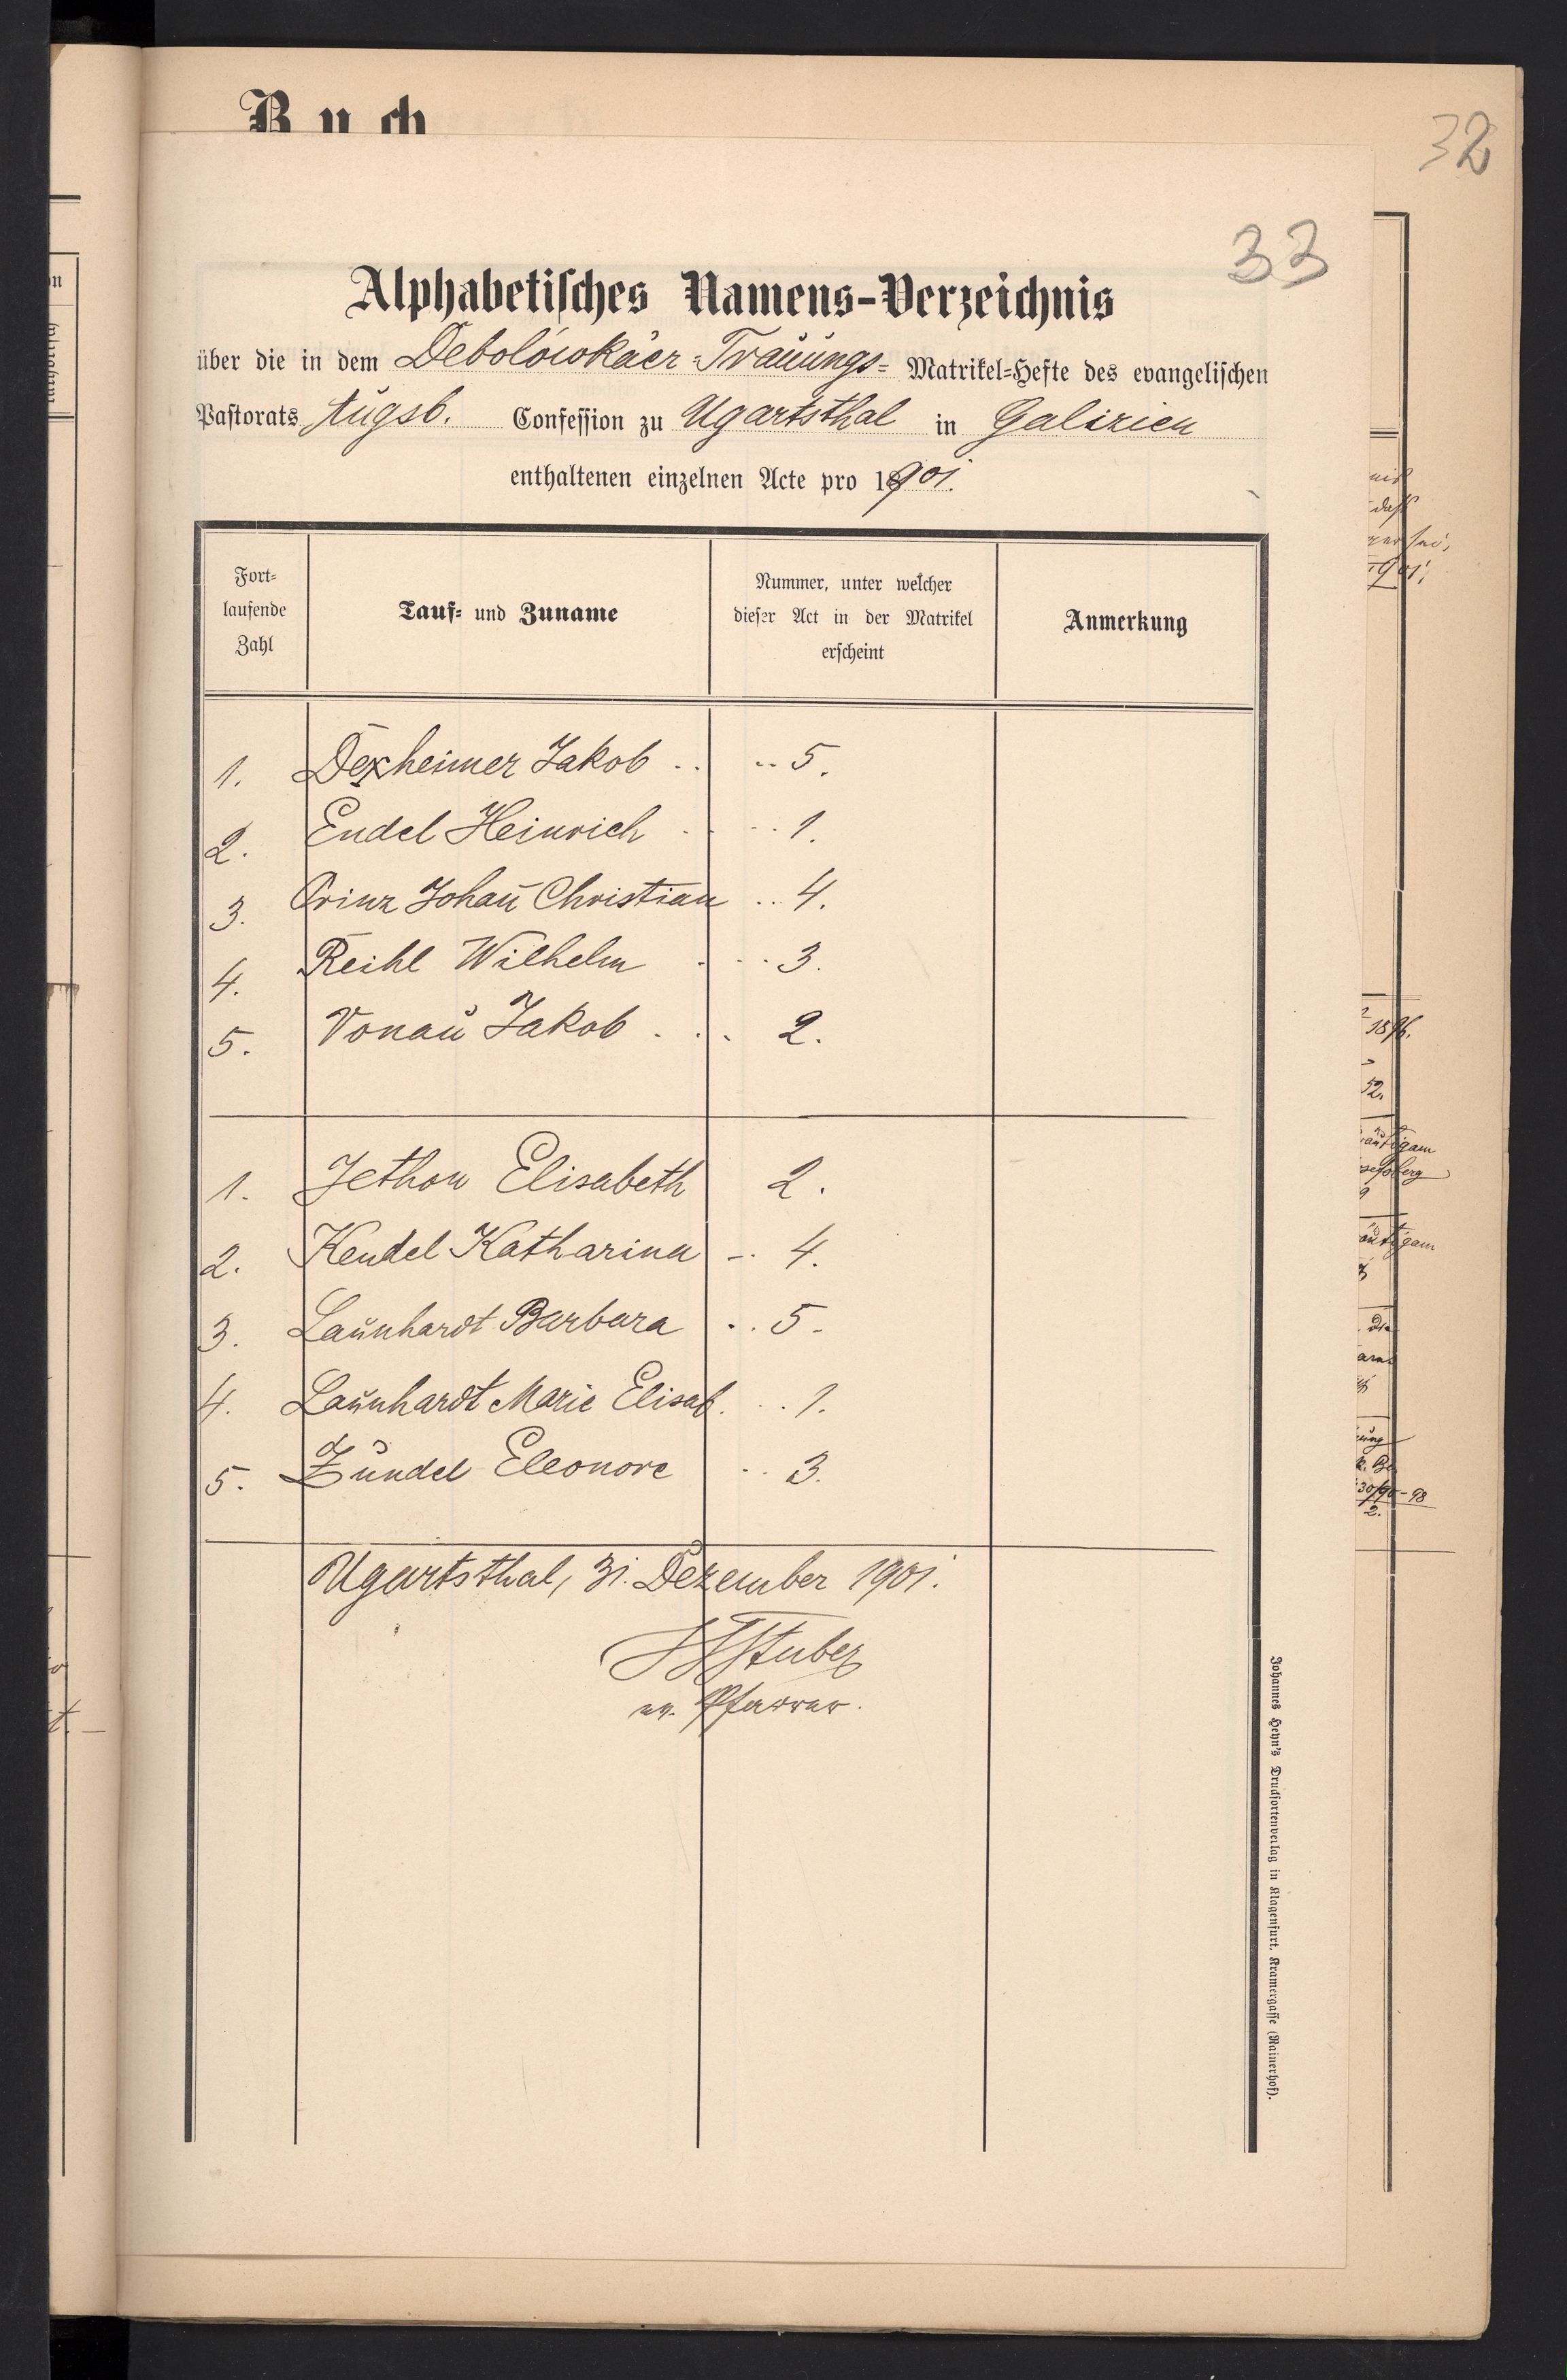 Buch
32
33
Alphabetisches Namens-Verzeichnis
über die in dem Debolówkaer Trauungs= Matrikel=Hefte des evangelischen
Pastorats Augsb. Confession zu Ugartsthal in Galizien
enthaltenen einzelnen Acte pro 1901.
Fort=laufende Zahl | Tauf= und Zuname | Nummer, unter welcher dieser Act in der Matrikel erscheint | Anmerkung
1. Dexheimer Jakob .. .. 5.
2. Endel Heinrich . . .. 1.
3. Prinz Johan̄ Christian .. 4.
4. Reihl Wilhelm . .. 3.
5. Vonau Jakob . . . 2.
1. Jethon Elisabeth 2.
2. Kendel Katharina -. 4.
3. Launhardt Barbara .. 5.
4. Launhardt Marie Elisab. .. 1.
5. Zündel Eleonore .. 3.
Ugartsthal, 31. Dezember 1901.
Stuber
ev. Pfarrer.
Johannes Heyn's Drucksortenverlag in Klagenfurt, Kramergasse (Rainerhof).